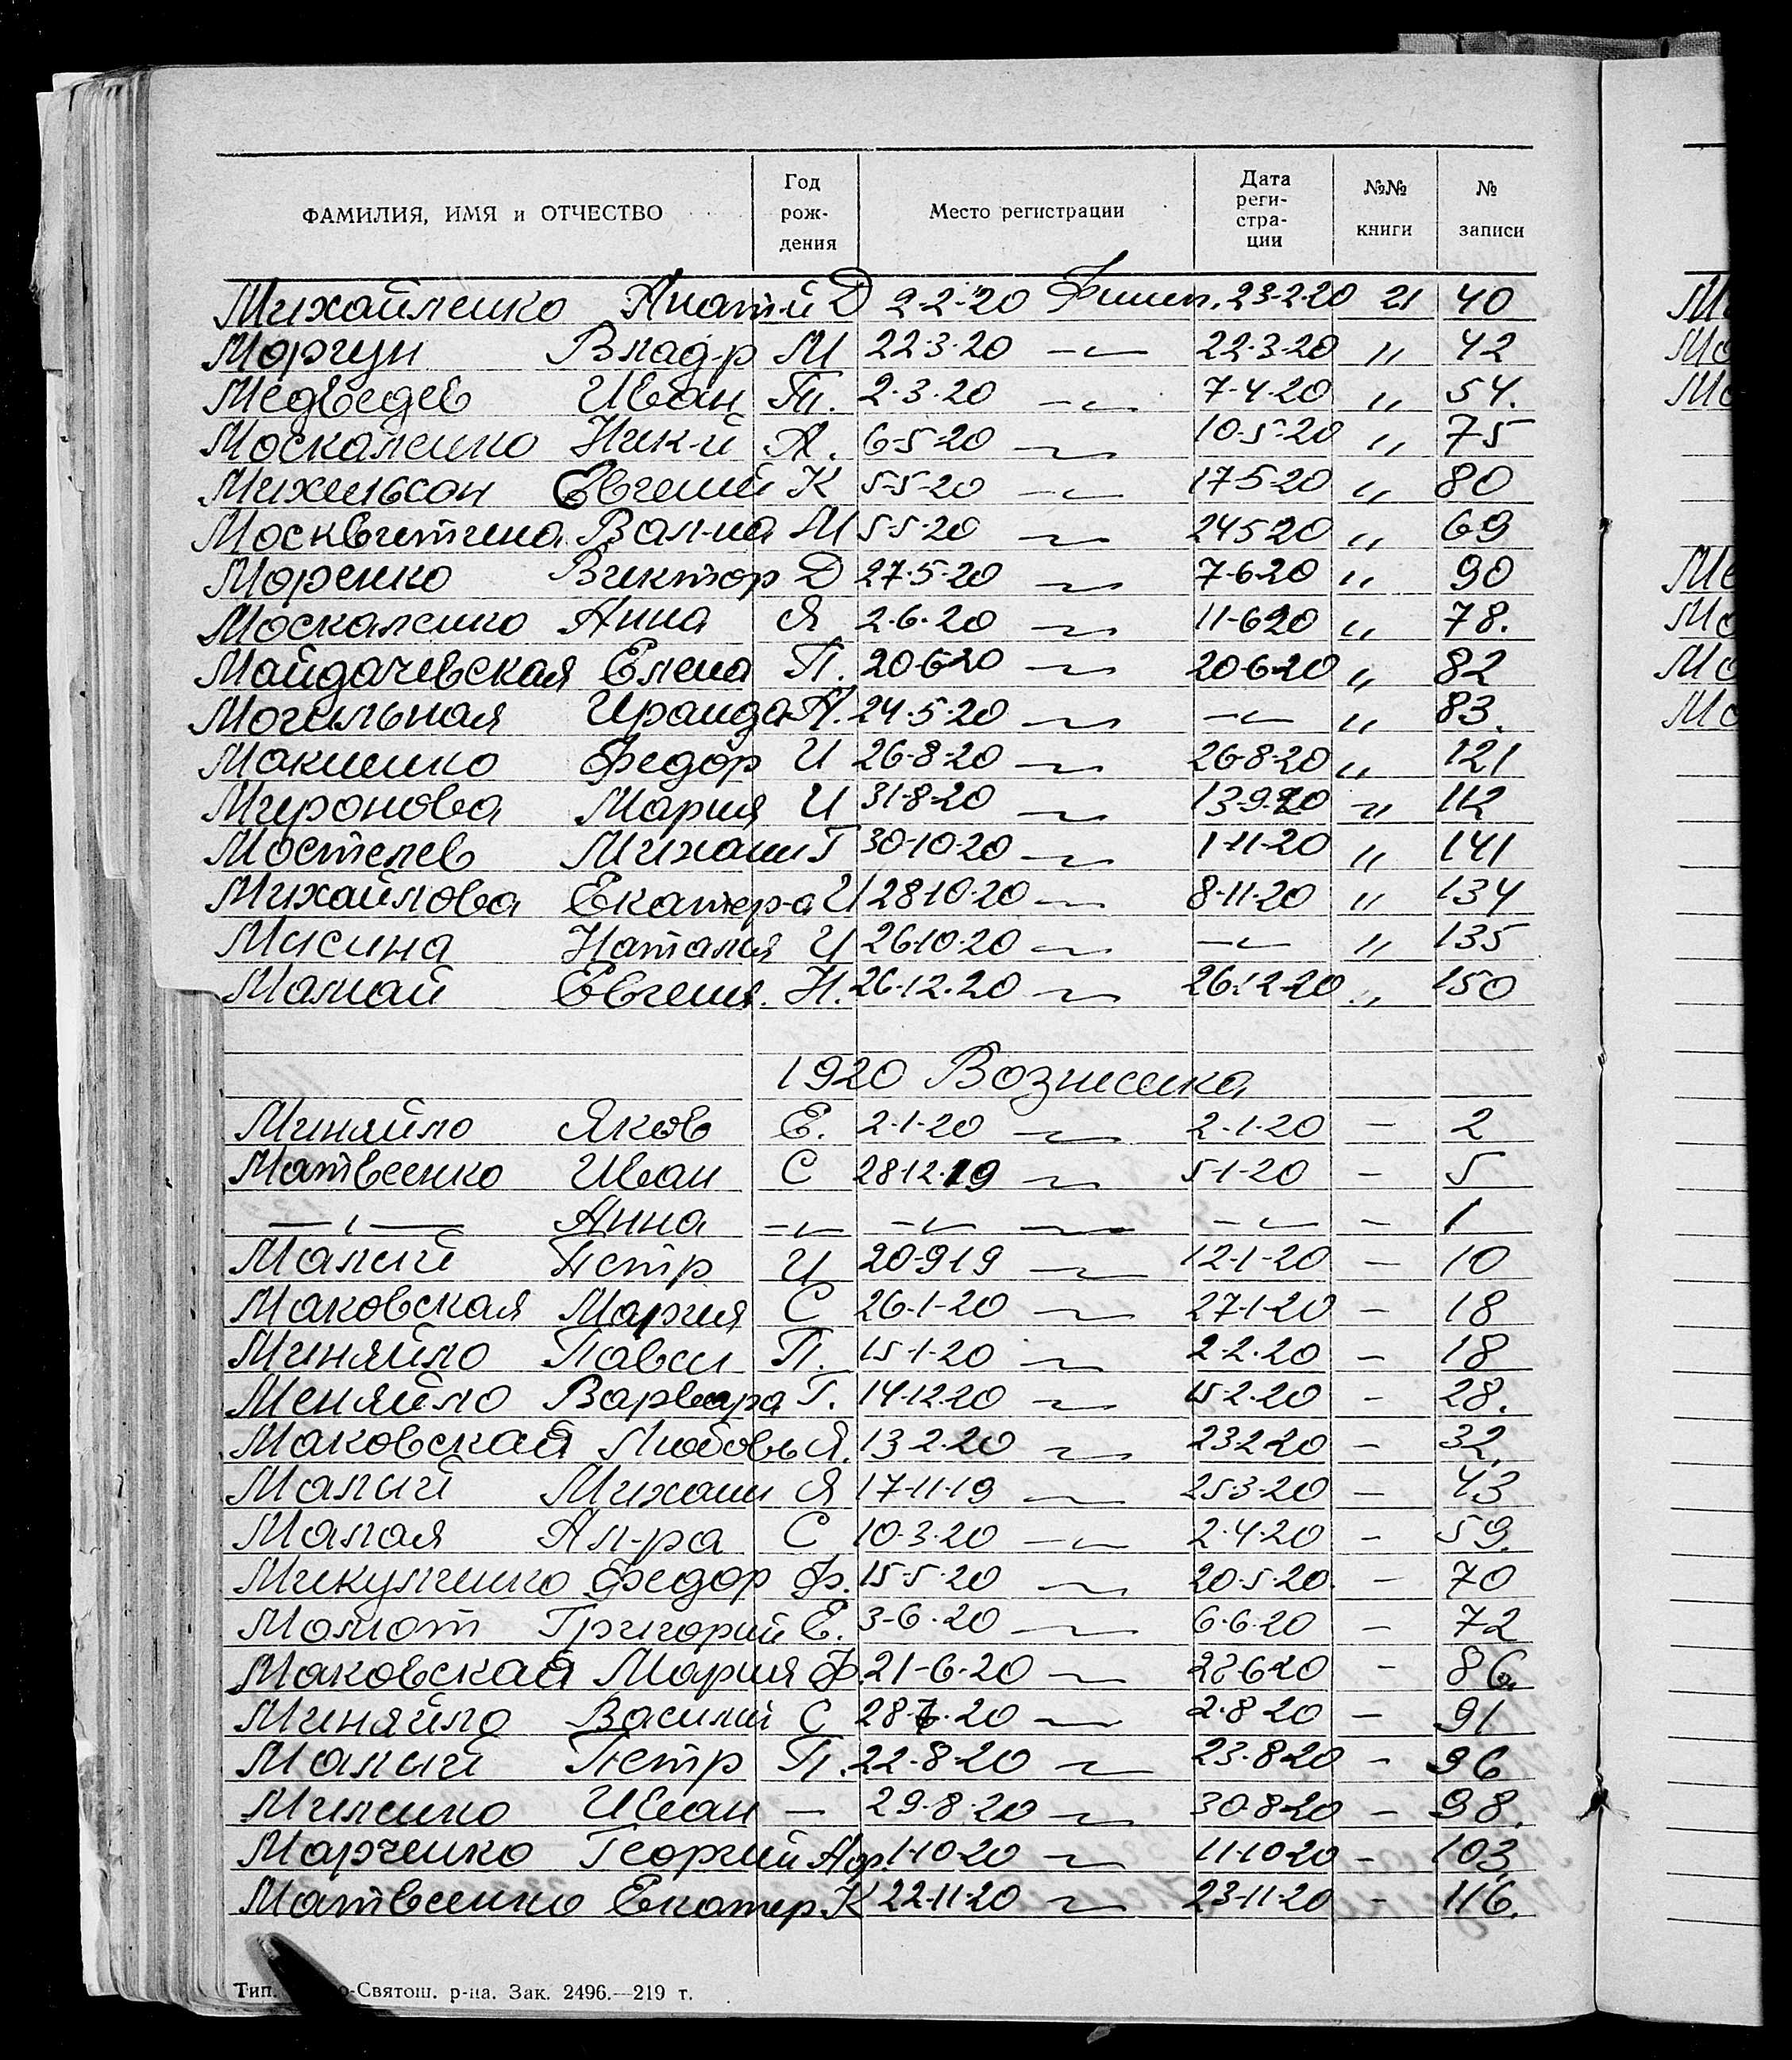 ФАМИЛИЯ, ИМЯ и ОТЧЕСТВО Год рож- дения Место регистрации Дата реги- стра- ции №№ книги № записи
Михайленко Анат-й Д 2-2-20 23-2-20 21 40
Моргун Влад-р М 22-3-20 –〃– 22-3-20 〃 42
Медведев Иван Т. 2-3-20 –〃– 7-4-20 〃 54.
Москаленко Ник-й А. 6-5-20 –〃– 10-5-20 〃 75
Михельсон Евгений К 5-5-20 –〃– 17-5-20 〃 80
Москвитина Вал-на М 5-5-20 –〃– 24 5 20 〃 69
Моренко Виктор Д 27-5-20 –〃– 7-6-20 〃 90
Москаленко Анна Я 2-6-20 –〃– 11-6 20 〃 78.
Майдачевская Елена П. 20-6-20 –〃– 20-6-20 〃 82
Могильная Ираида А. 24-5-20 –〃– –〃– 〃 83.
Макиенко Федор И 26-8-20 –〃– 26-8-20 〃 121
Миронова Мария И 31-8-20 –〃– 13-9-20 〃 112
Мостелев Михаил Г 30-10-20 –〃– 1-11-20 〃 141
Михайлова Екатер-а И 28-10-20 –〃– 8-11-20 〃 134
Мисина Наталия И 26-10-20 –〃– –〃– 〃 135
Мамай Евгения Н. 26-12-20 –〃– 26-12-20 〃 150
1920 Вознесенка
Миняйло Яков Е. 2-1-20 –〃– 2-1-20 – 2
Матвеенко Иван С 28-12-19 –〃– 5-1-20 – 5
–〃– Анна –〃– –〃– –〃– –〃– – 1
Малый Петр И 20-9 19 –〃– 12-1-20 – 10
Маковская Мария С 26-1-20 –〃– 27-1-20 – 18
Миняйло Павел П. 15-1-20 –〃– 2-2-20 – 18
Меняйло Варвара Г. 14-12-20 –〃– 15-2-20 – 28.
Маковская Любовь Я. 13-2-20 –〃– 23-2-20 – 32.
Малый Михаил Я 17-11-19 –〃– 25-3-20 – 43
Малая Ал-ра С 10-3-20 –〃– 2-4-20 – 59.
Микульченко Федор Ф. 15-5-20 –〃– 20-5-20. – 70
Момот Григорий Е. 3-6-20 –〃– 6-6-20 – 72
Маковская Мария Ф. 21-6-20 –〃– – 86.
Миняйло Василий С 28-7-20 –〃– 2-8-20 – 91
Малый Петр П. 22-8-20 –〃– 23-8-20 – 96
Миленко Иван – 29-8-20 –〃– 30-8-20 – 98.
Марченко Георгий 1-10-20 –〃– 11-10-20 – 103.
Матвеенко Екатер К 22-11-20 –〃– 23-11-20 – 116.
Тип. о-Святош. р-на. Зак. 2496.—219 т.